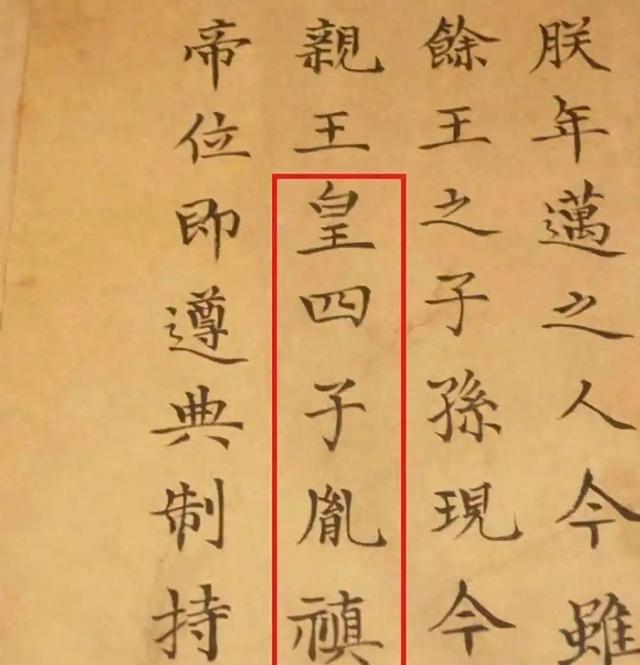 朕年邁之人今雖
餘王之子孫現今
親王皇四子胤禛
帝位即遵典制持